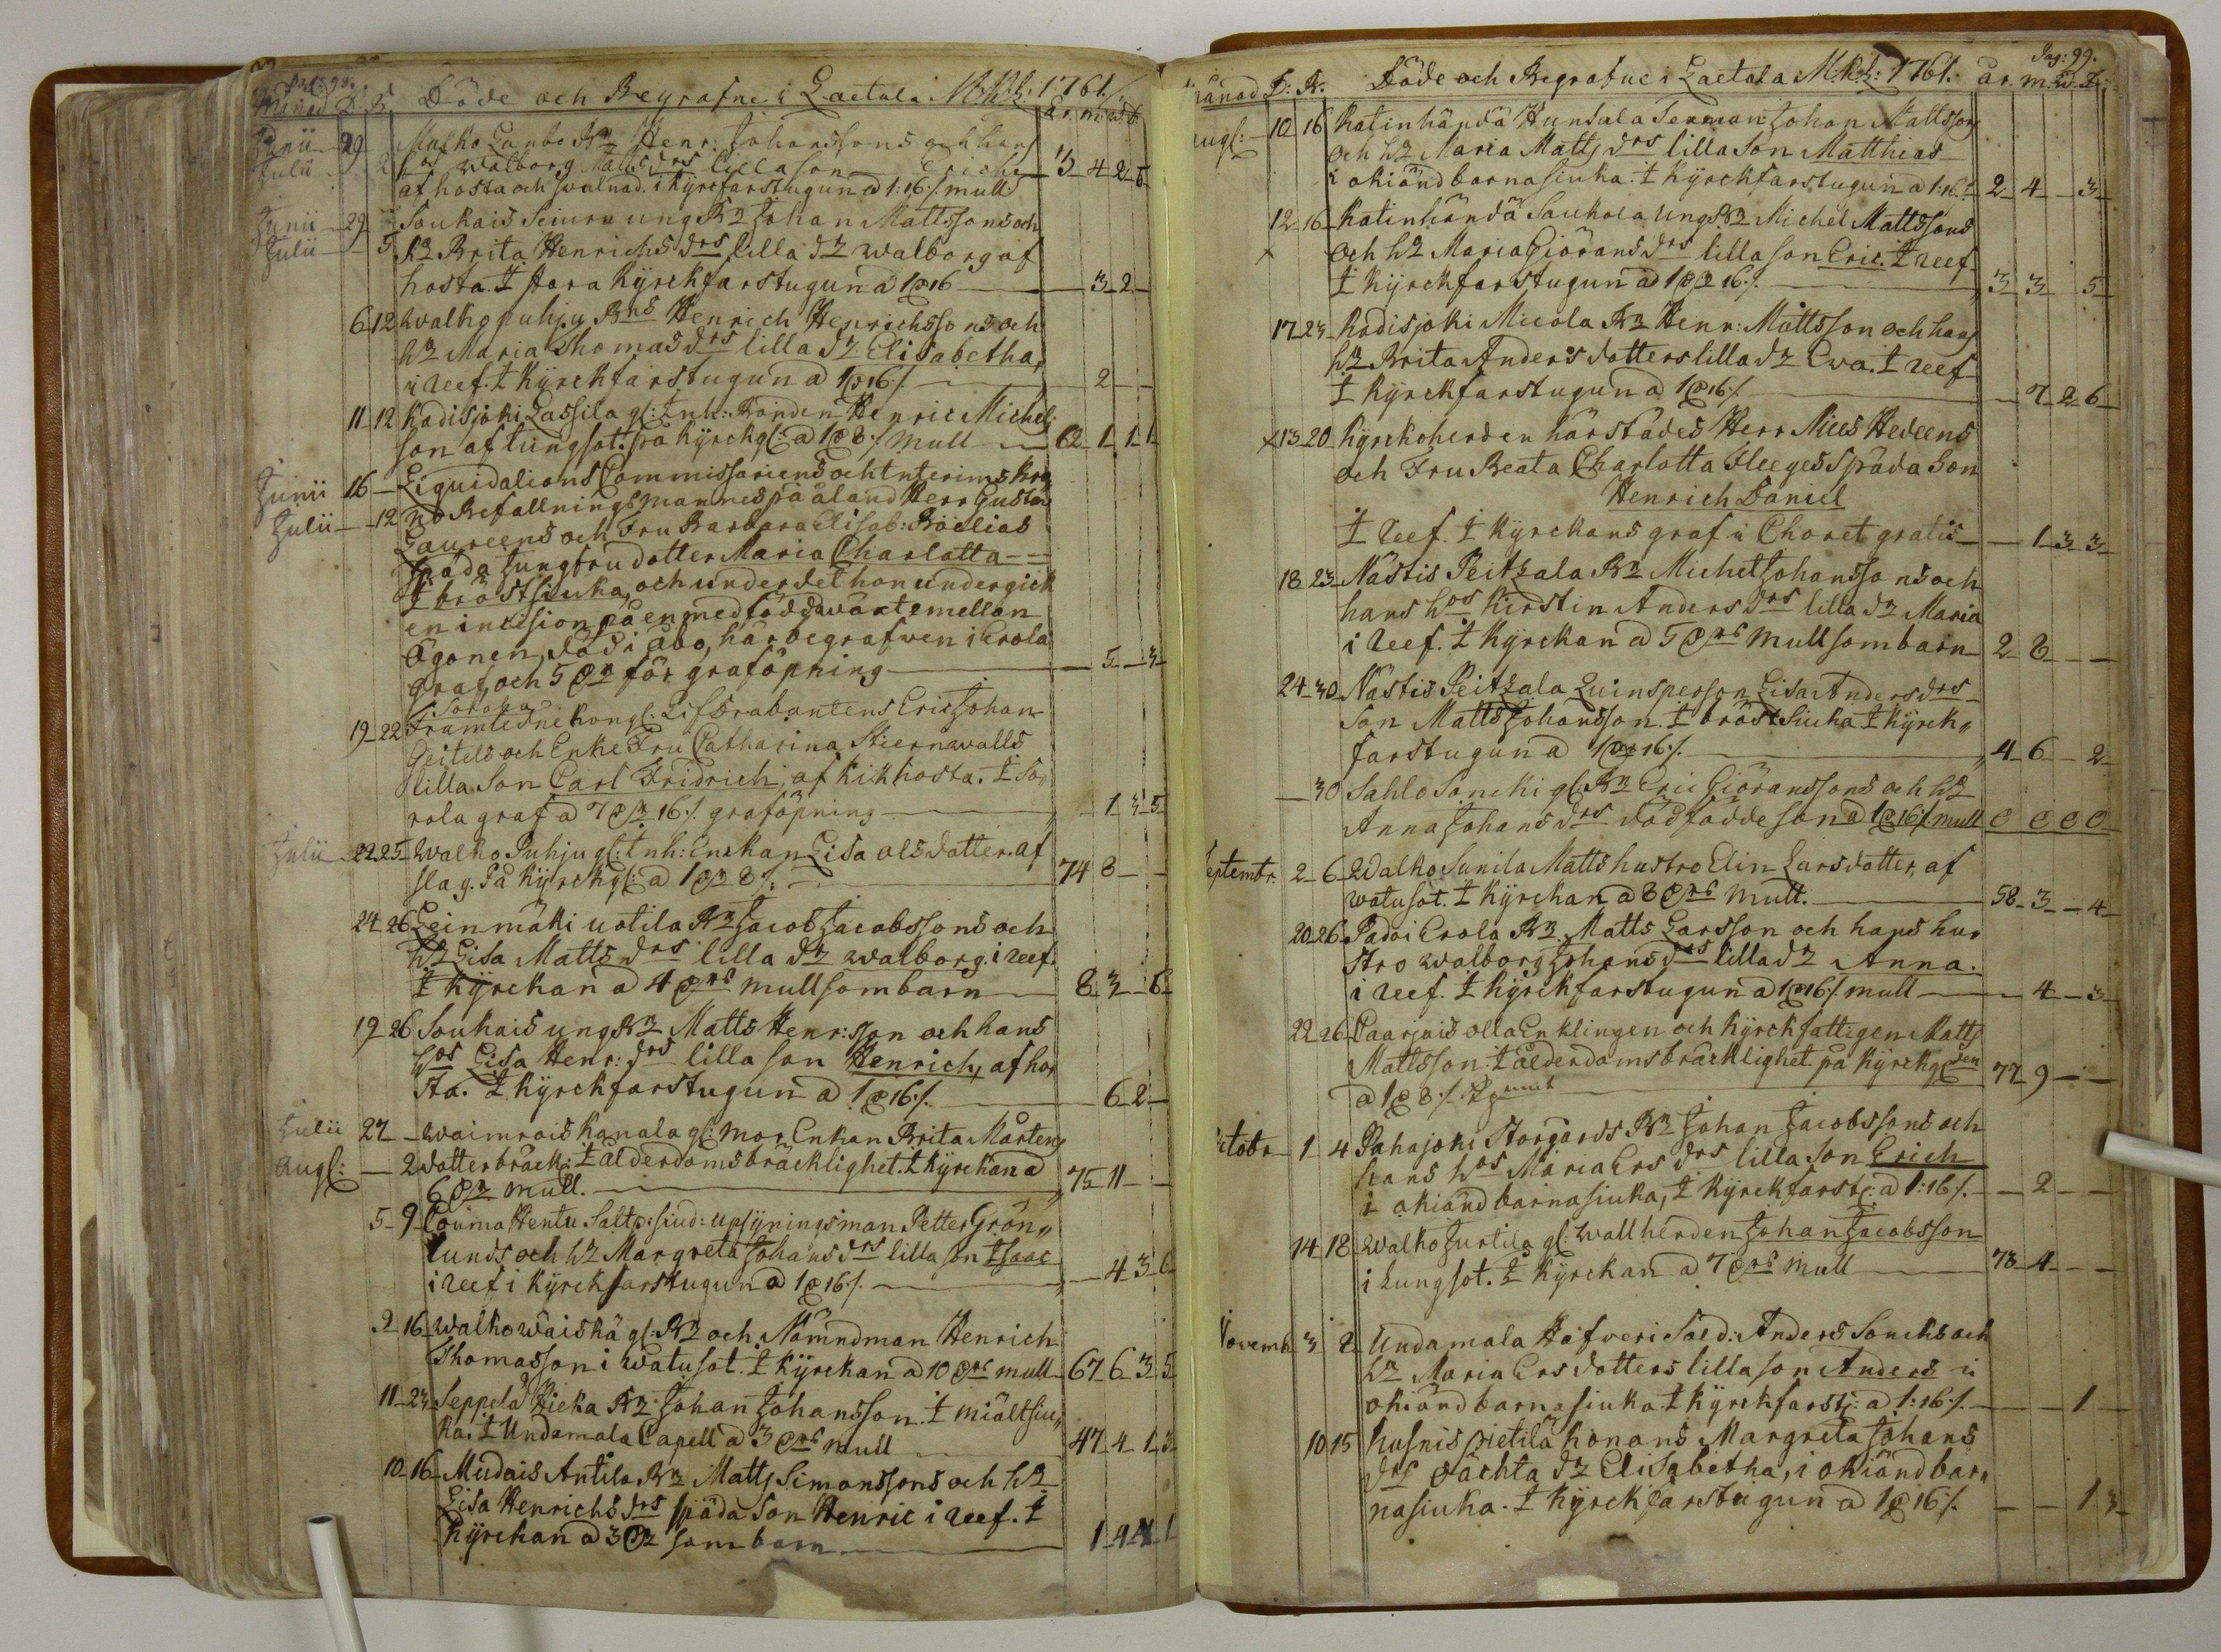 Pag: 98.
Månad D. B. Döde och Begrafne i Laetala M.K.h: 1761. år. m. w. d.
Junii 29 Malko Lanbo Bz Henr. Johanssons och hans
Julii 2 hos Walborg drs lilla son Erich 3 4 2 5
af hosta och swalnad. i Kyrckfarstugun a 1:16 /. mull
Junii 29 Souhais Seiuru ung Bz Johan Mattssons och
Julii 5 hz Brita Henrichs drs lilla dz Walborg af
hosta. I stora Kyrckfarstugun a 1 16 3 2
6 12 Walko puhju Bns Henrich Henrichssons och
hz Maria Thomas drs lilla dz Elisabetha,
i reef. I Kyrckfarstugun a 1 16 /. 2
11 12 Kadisjoki Lassila gl: Inh: Bonden Henric Michels
son af lungsot. På kyrckgl: a 1 8 /. mull 62 1 1 1
Junii 16 Liquidations Commissariens och Interims kro
Julii 12 no Befallningsmannes på åland Herr Gustav
Laureens och Fru Barbara Elisab: Böclias
späda Jungfru dotter Maria Charlotta
I bröstsiuka, och under det hon undergick
en incision på en medfödd wäxt emellan
ögonen, död i Åbo, här begrafwen i Erola
graf, och 5 för graföpning 5 3
Sorola
19 22 Framledne kongl: Lifdrabantens Eric Johan
Geitels och Enke Fru Catharina Stiernwalls
lilla Son Carl Fridrich, af kikhosta. I So,,
rola graf a 7 16 /. graföpning 1 3 5
Julii 22 25 Walko Puhju gl: Inh: Enckan Lisa olsdotter. af
slag. På Kyrckgl: a 1 8 /. 74 8
24 26 Leinmäki uotila Bz Jacob Jacobssons och
hz Lisa Matts drs lilla dz Walborg. i reef.
I Kyrckan a 4 mull som barn 8 3 6
19 26 Souhais ung Bz Matts Henr:sson och hans
hos Lisa Henr: drs lilla son Henrich, af ho
sta. I Kyrckfarstugun a 1 16 /. 6 2
Julii 27 Waimrois kanala gl: mor Enkan Brita Mårtens
Augl: 2 dotter bräck: I ålderdomsbräcklighet. I Kyrckan a
6 mull. 75 11
5 9 Couma Hentu Saltp: siud: upsyningsman Petter Grön,,
lunds och hz Margreta Johans drs lilla son Isaac
i reef i Kyrckfarstugun a 1 16 /. 4 3 6
2 16 Walko Wäiskä gl: Bz och Nämndman Henrich
Thomasson i Watusot. I Kyrckan a 10 mull 67 6 3 5
11 23 Seppela Hieka Bz Johan Johansson. I miältsiu,,
ka. I Undamala Capell a 3 mull 47 4 1 3
10 16 Mudais Antila Bz Matts Simonssons och hz
Lisa Henrichs drs späda Son Henric i reef. I
Kyrckan a 3 som barn 1 4 1
Pag: 99.
Månad D: B. Döde och Begrafne i Laetala M.K.h: 1761. år. m. w. D:
Augl: 10 16 Katinhändä Hunsala Sexman Johan Mattssons
och hz Maria Matts drs lilla Son Matthias
i okiänd barnasiuka. I Kyrckfarstugun a 1:16 /. 2 4 3
12 16 Katinhändä Saukola ung Bz Michel Mattssons
x och hz Maria Giörans drs lilla son Eric. I reef
I Kyrckfarstugun a 1 16 /. 3 3 5
17 23 Kadisjoki Micola Bz Henr: Mattsson och hans
hz Brita Anders dotters lilla dz Ewa. I reef
I Kyrckfarstugun a 1 16 /. 7 2 6
x 13 20 Kyrckoherden härstädes Herr Nils Hedeens
och Fru Beata Charlotta Fleeges Späda Son
Henrich Daniel
I reef. I Kyrckans graf i Choret gratis 1 3 3
18 23 Nästis Peitzala Bz Michel Johanssons och
hans hos Kirstin Anders drs lilla dz Maria
i reef. I Kyrckan a 5 mull som barn 2 8
24 30 Nästis Peitzala Quinsperson Lisa Anders drs
Son Matts Johansson. I bröst Siuka I Kyrck,,
farstugun a 1 16 /. 4 6 2
30 Sahlo Soncki gl: Bz Eric Giöranssons och hz
Anna Johans drs dödfödde son a 1 16 /. mull 0 0 0 0
Septembr. 2 6 Walko Sunila Matts hustro Elin Larsdotter, af
watusot. I Kyrckan a 8 mull. 58 3 4
20 26 Padoi Erola Bz Matts Larsson och hans hu,
stro Walborg Johans drs lilla dz Anna.
i reef. I Kyrckfarstugun a 1 16 /. mull 4 3
22 26 Caarjois olla Enklingen och Kyrckfattigen Matts
Mattsson. I ålderdomsbräcklighet. på Kyrckgl
a 1 8 /. 77 9
Octobr 1 4 Pahajoki Storgårds Bz Johan Jacobssons och
hans hos Maria Ers drs lilla Son Erich
i okiänd barnasiuka, I Kyrckfarst: a 1:16 /. 2
14 18 Walko Jurtila gl: Wallherden Johan Jacobsson
i Lungsot. I Kyrckan a 7 mull 73 4
Novemb 3 8 Undamala Höfveri Sold: Anders Soncks och
hz Maria Ersdotters lilla son Anders i
okiänd barnasiuka. I Kyrckfarst: a 1:16 /. 1
10 15 Kusnis pietilä konans Margreta Johans
drs oächta dz Elisabetha, i okiänd bar,,
nasiuka. I Kyrckfarstugun a 1 16 /. 1 3